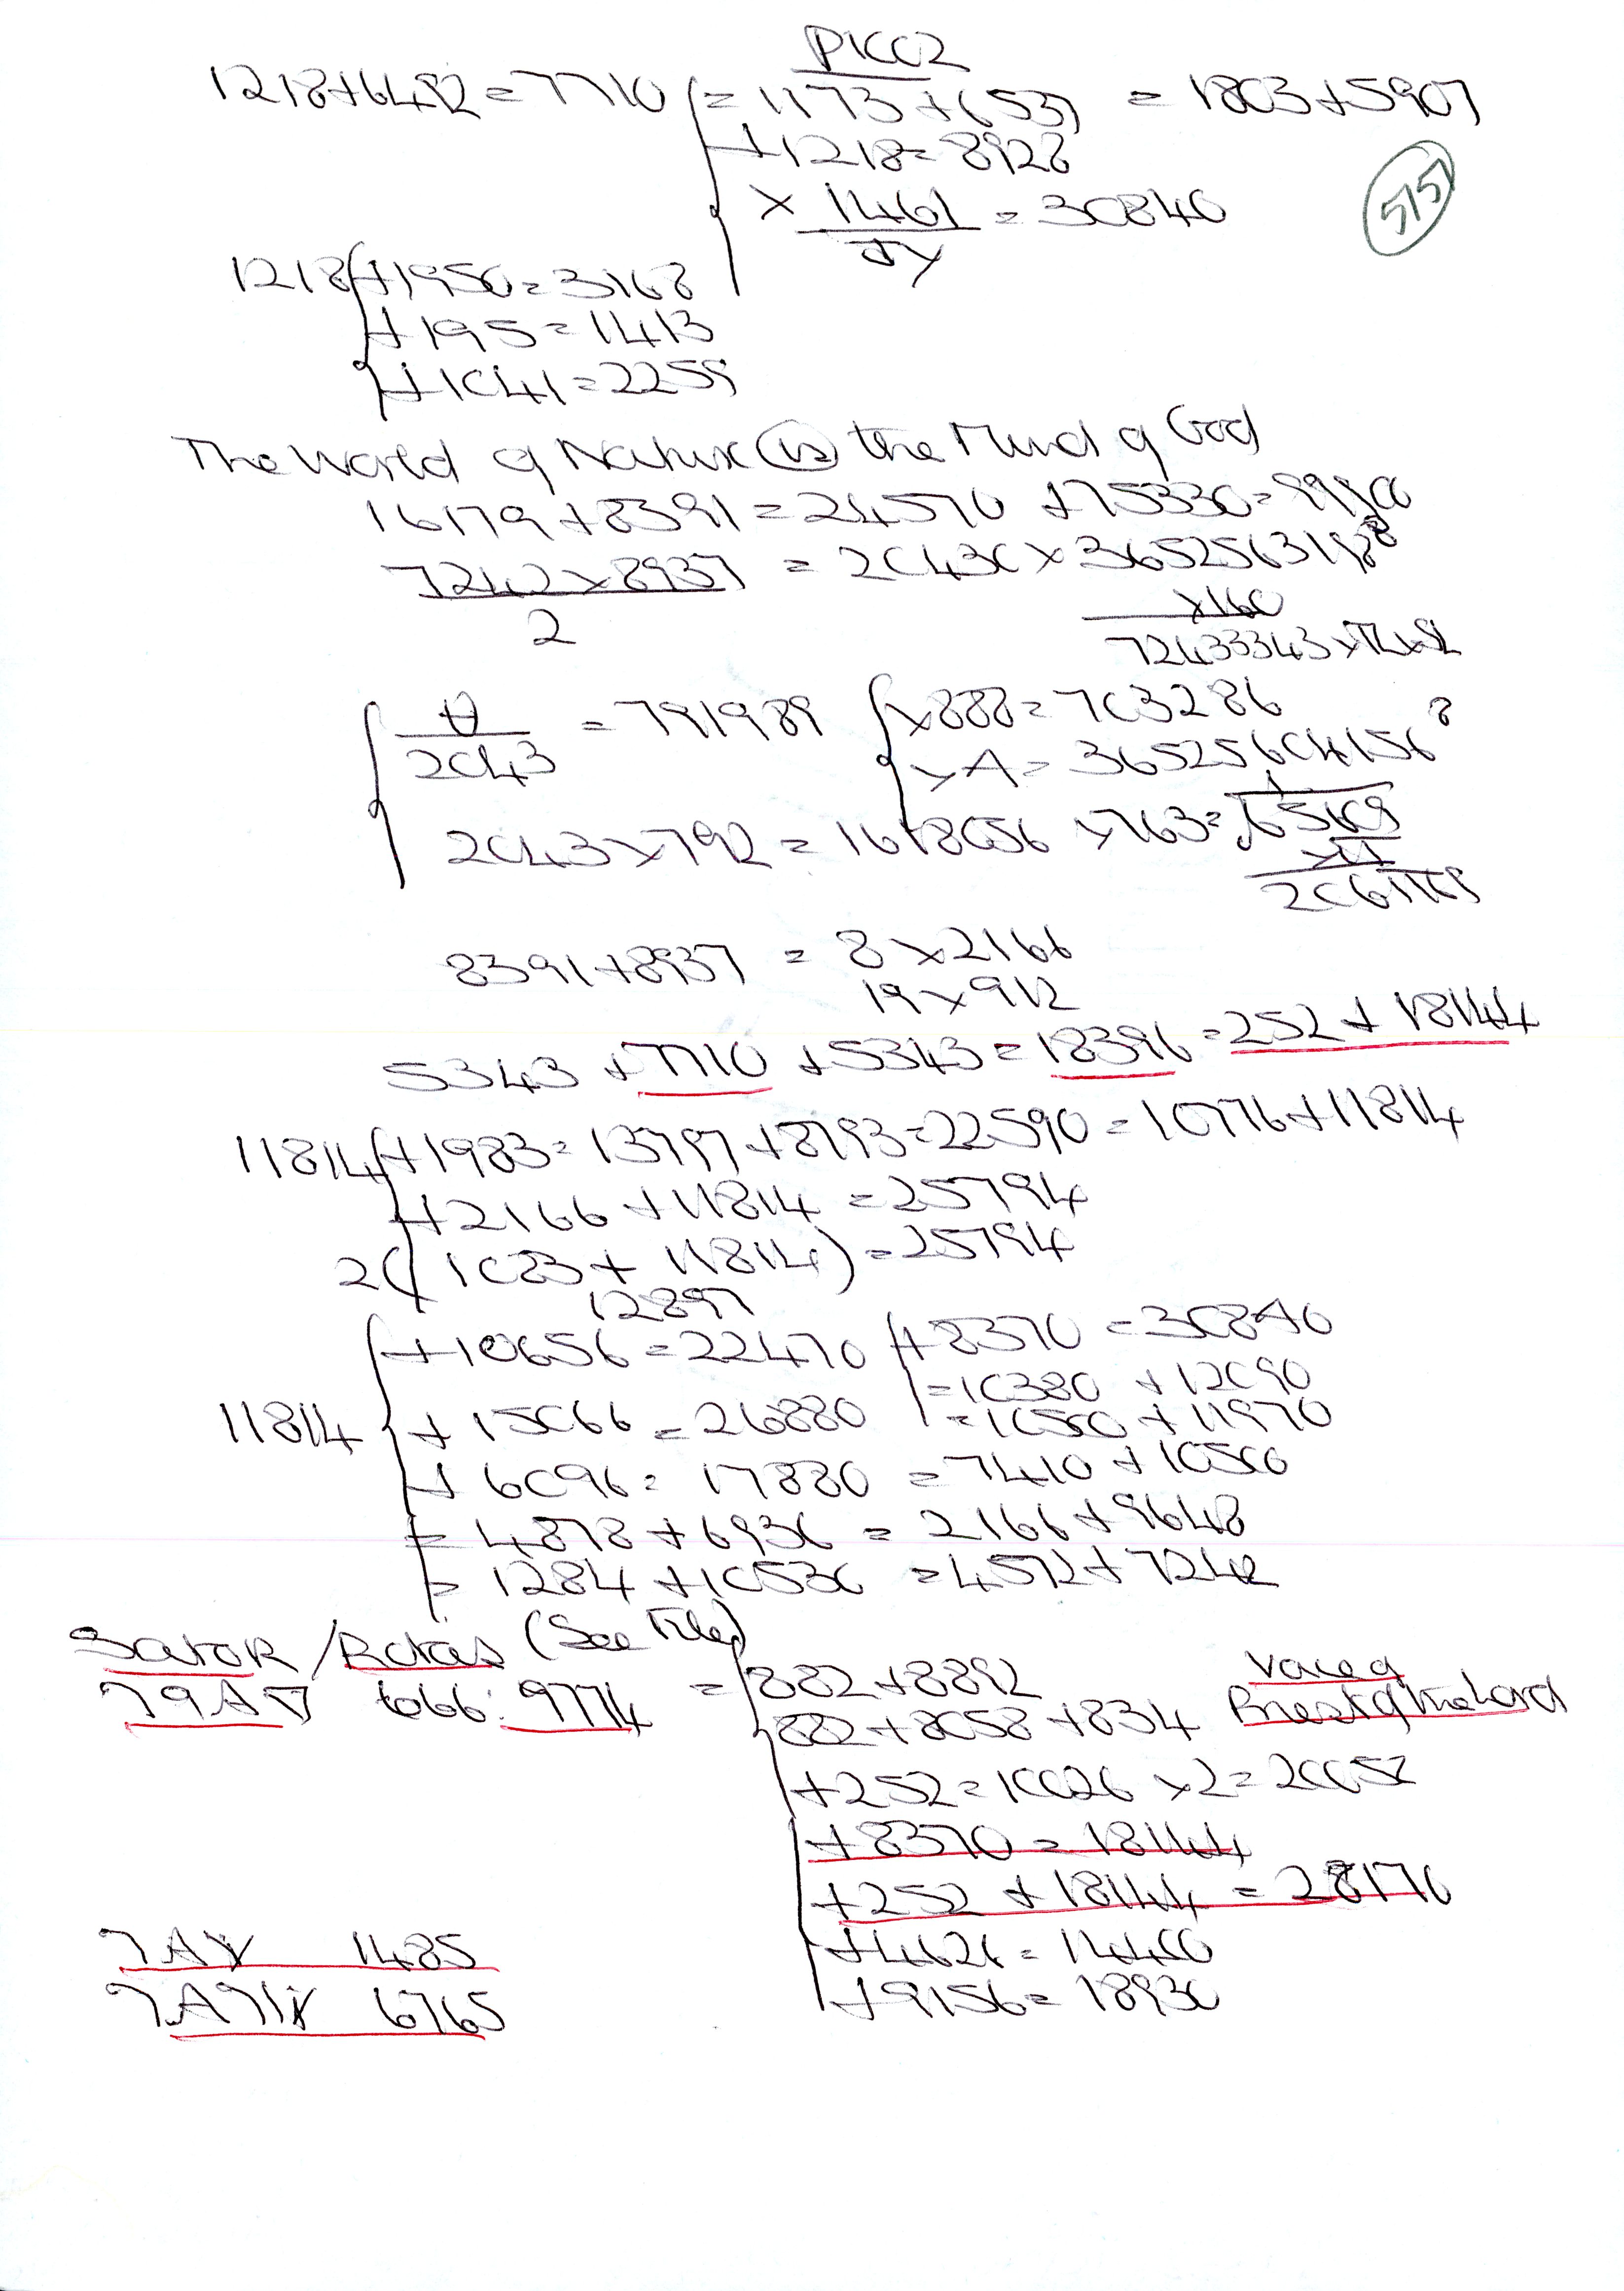 PICC2
1218+6492=7710 =1173+6537 =1803+5907
+1218=8928
515
× 1461 = 30840
1218 +1950=3168
+195=1413
+1041=2259
The World of Nature is the Mind of God
16179+8391=24570 +75330=99900
7242×8937 = 2043C×3652563198
2
×160
72433343
= 791989 ×888=703286
2043
×A= 36525604156
2043×792=1618056 ×763=
8391+8937 = 8×2166
19×912
5343 +7710 +5343=18396=252+18144
11814 +1983=13797+8793=22590=10776+11814
+2166+11814=25794
2(1083+11814)=25794
12897
+10656=22470 +8370=30840
=10380+12090
11814 +15066=26880 =10500+11970
+6096= 17880 =7410+10500
=4878+6936=2166+9648
=1284+10530 =4572+7242
Sator/Rotas (See File)
666: 9774 = 882+8892 Voice of
882+8058+834 Priest of the Lord
+252=10026 ×2=20052
+8370=18144
+252+18144=28170
+4626=14400
1485
+9156=18930
6765